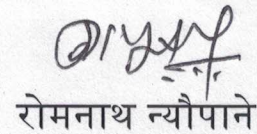 रोमनाथ न्यौपाने